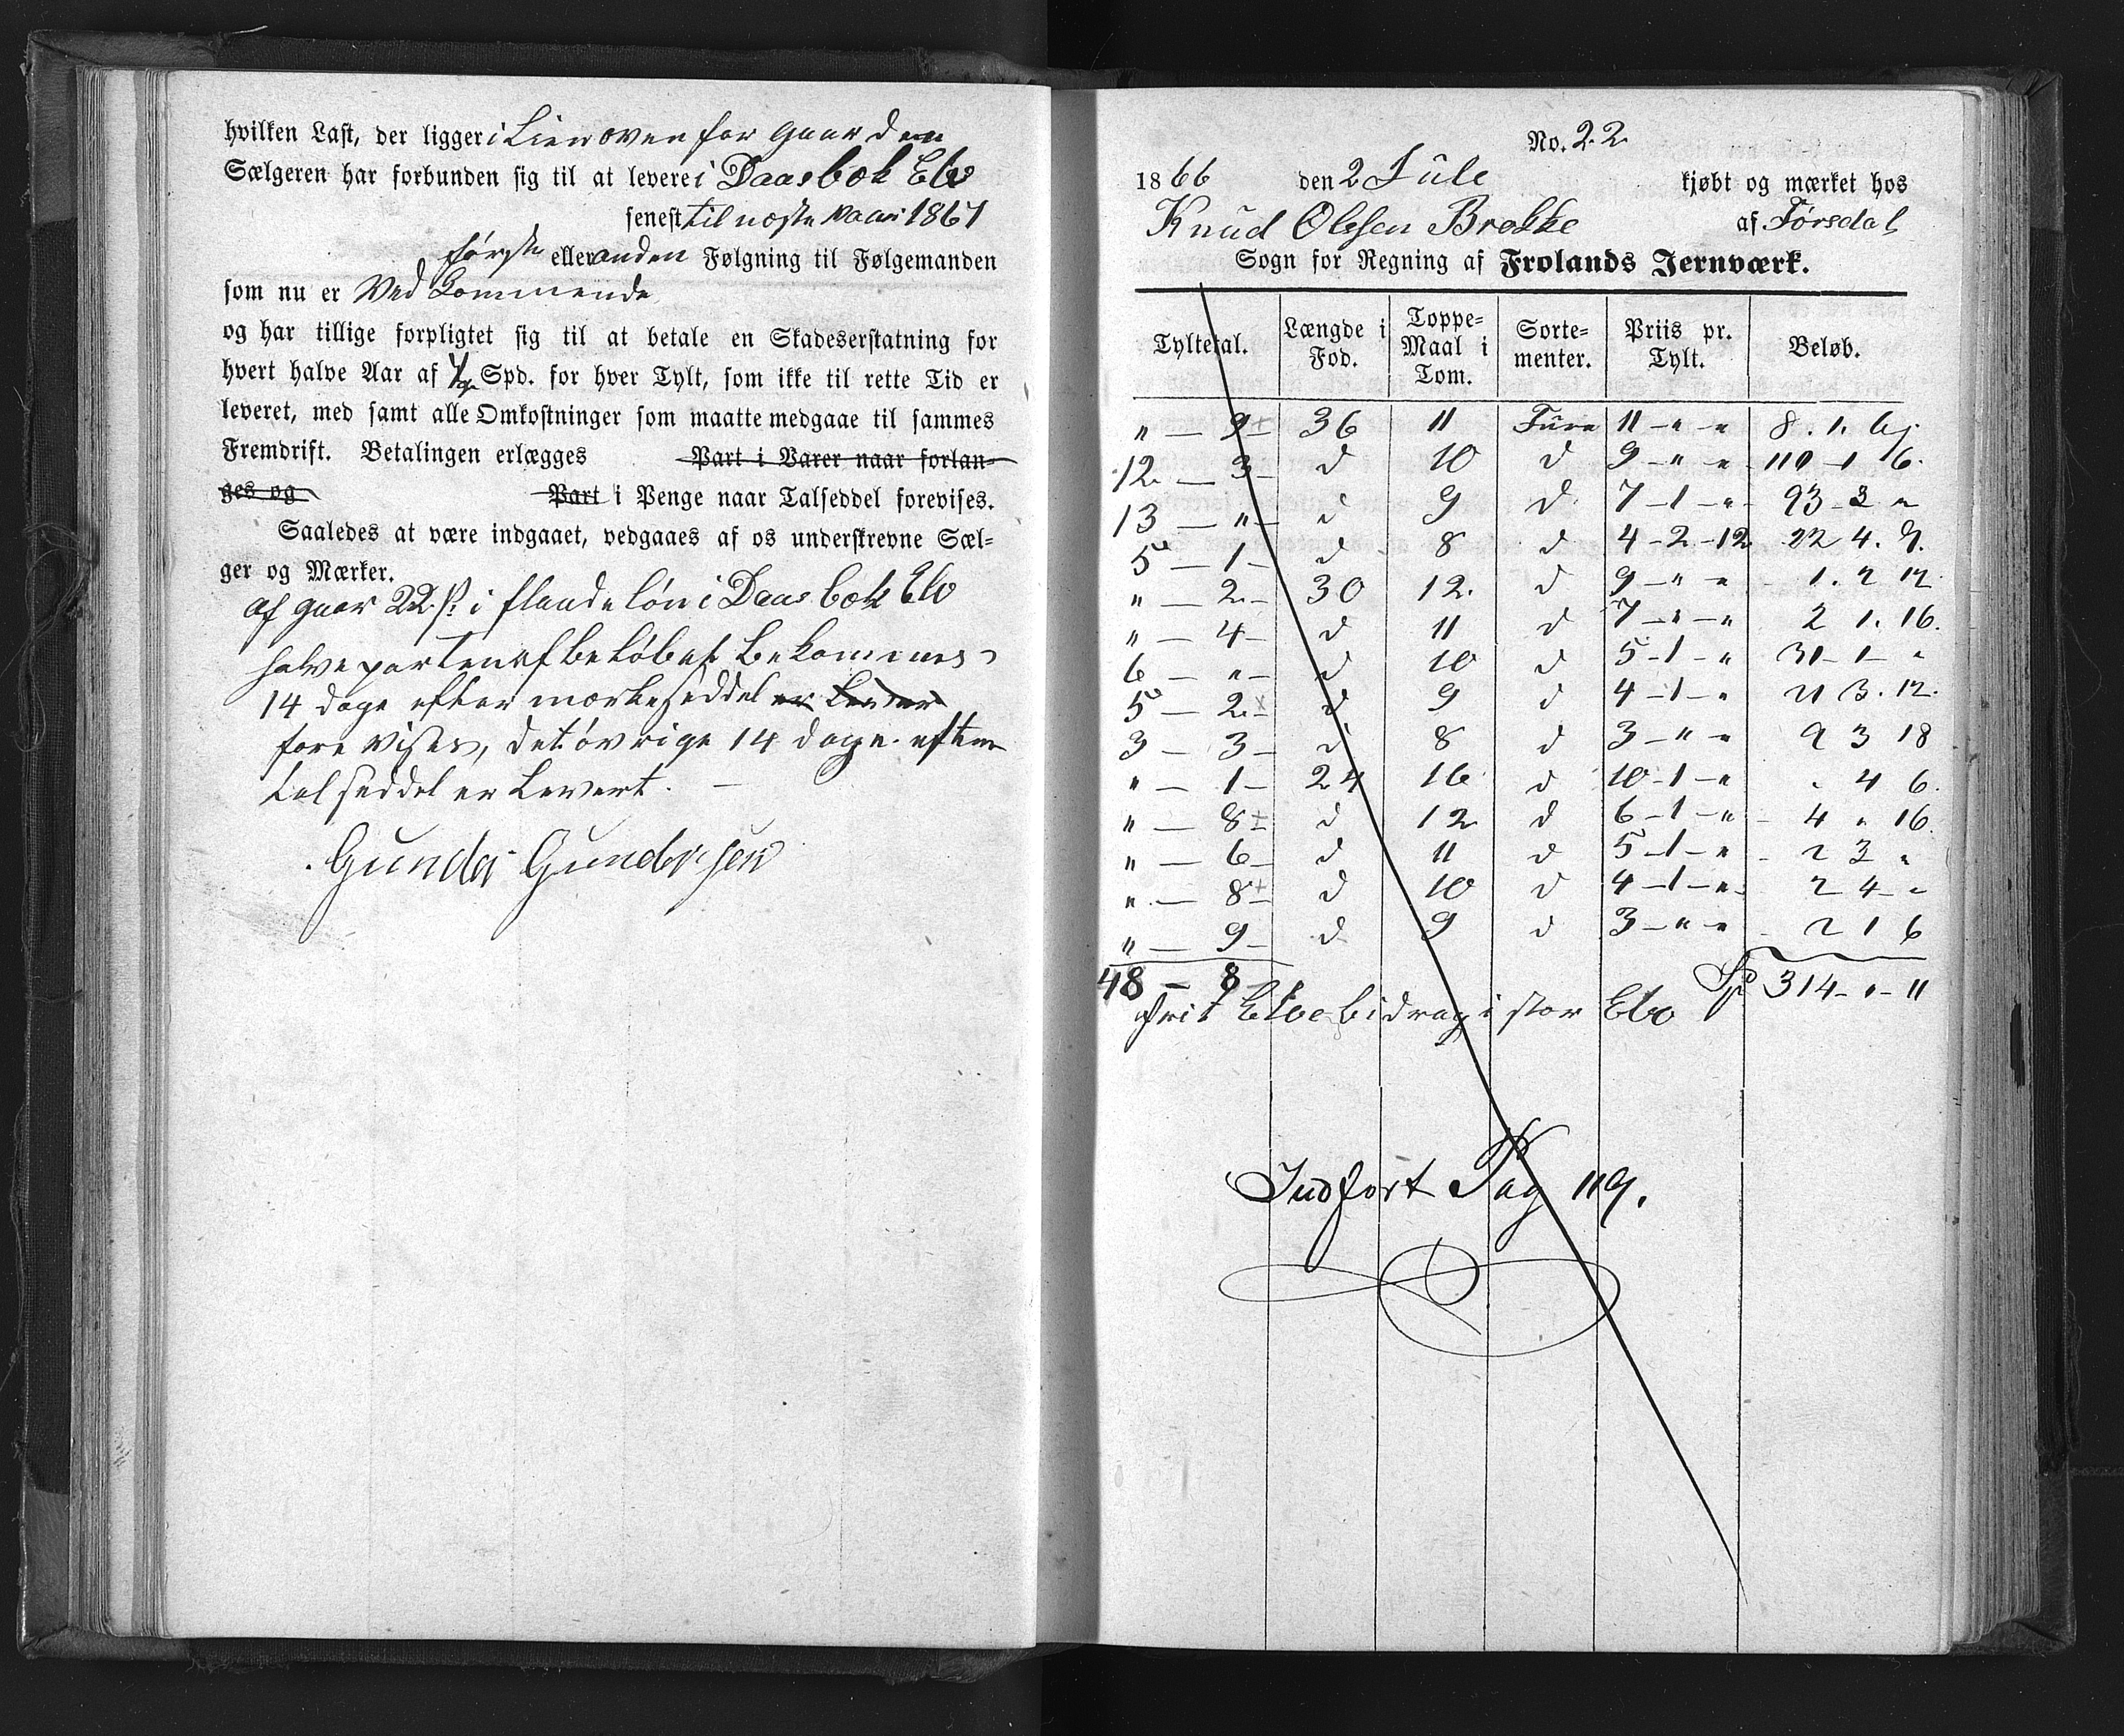 hvilken Last, der ligger i Lien oven for gaarden
Sælgeren har forbunden sig til at levere i Daasbok Elv
senest til næste vaar 1867
første eller anden Følgning til Følgemanden
som nu er Ved Kommende
og har tillige forpligtet sig til at betale en Skadeserstatning for
hvert halve Aar af Spd. for hver Tylt, som ikke til rette Tid er
leveret, med samt alle Omkostninger som maatte medgaae til sammes
Fremdrift. Betalingen erlægges Part i Varer naar forlan-
ges og Part i Penge naar Talseddel forevises.
Saaledes at være indgaaet, vedgaaes af os underskrevne Sæl-
ger og Mærker.
af gaar 22 i flaadeløn i Daasbok Elv
halve parten af beløbet bekommes
14 dage efter mærkeseddel er
fore vises, det øvrige 14 dage efter
talseddel er Levert. —
Gunder Gundersen
No. 22
1866 den 2 Jule kjøbt og mærket hos
Knud Olssen Brokke af Tørsdal
Sogn for Regning af Frolands Jernværk.
Tyltetal. Længde i Fod. Toppe-Maal i Tom. Sorte-menter. Priis pr. Tylt. Beløb.
" — 9 36 11 Fure 11 - " - " 8. 1. 6
12 — 3 d 10 d 9 - " - " 110 - 1 6.
13 — " d 9 d 7 - 1 - " 93 - 3 "
5 — 1 d 8 d 4 - 2 - 12 22 4. 9.
" — 2 30 12. d 9 - " - " 1. 2 12
" — 4 d 11 d 7 - " - " 2 1. 16.
6 — " d 10 d 5 - 1 - " 31 - 1 - "
5 — 2 d 9 d 4 - 1 - " 21 3. 12.
3 — 3 d 8 d 3 - " - " 9 3 18
" — 1 24 16 d 10 - 1 - " " 4 6.
" — 8 d 12 d 6 - 1 - " 4 " 16
" — 6 d 11 d 5 - 1 - " 2 3 "
" — 8 d 10 d 4 - 1 - " 2 4 - "
" — 9 d 9 d 3 - " - " 2 1 6
48 — 8 Spd 314 - " - 11
frit Elvebidrag i stor Elv
Indført Pag 119.